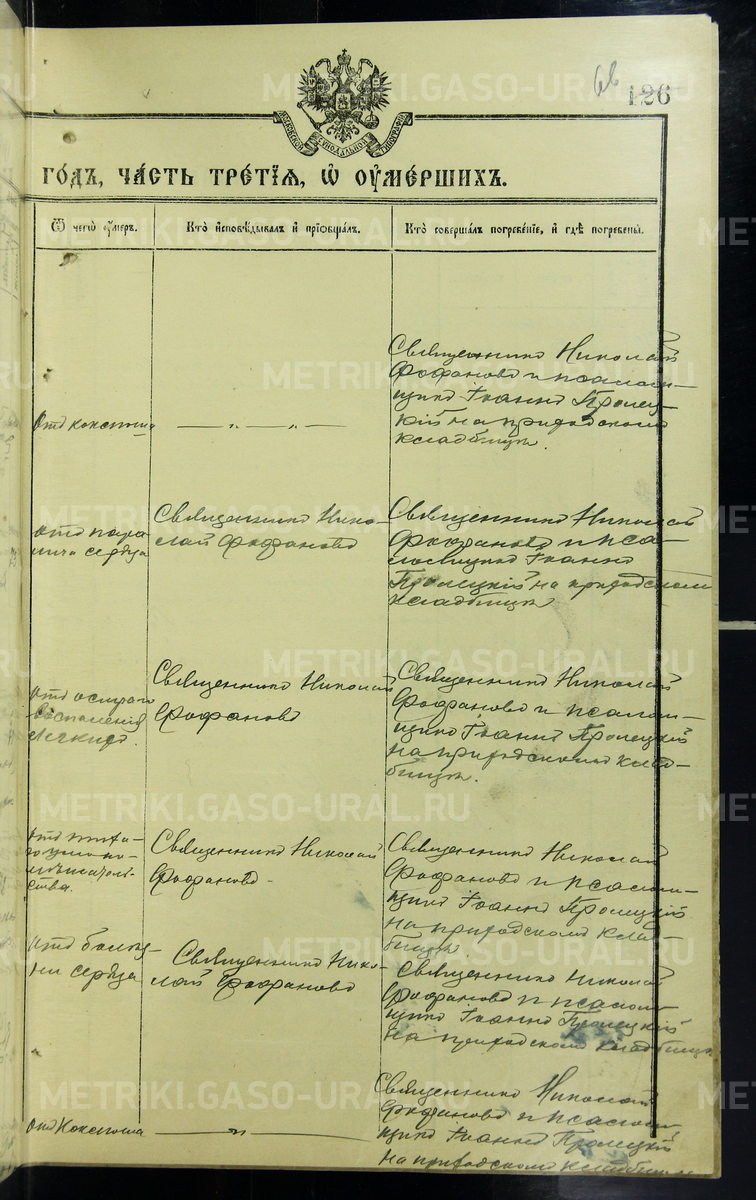 66
126
МОСКОВСКОЙ СѴНОДАЛЬНОЙ ТИПОГРАФІИ
ГО́ДЪ, ЧА́СТЬ ТРЕ́ТІѦ, Ѡ҆ ОУ҆МЕ́РШИХЪ.
Ѿ чегѡ̀ ᲂу҆́меръ.
Кто̀ и҆сповѣ́дывалъ и҆ прїѡбща́лъ.
Кто̀ соверша́лъ погребе́нїе, и҆ гдѣ̀ погребены̀.
Священникъ Николай
Фофановъ и псалом-
щикъ Іоаннъ Пролец-
кій на приходскомъ
кладбищѣ.
Отъ коклюша
— „ — „ —
Отъ пара-
лича сердца
Священникъ Нико-
лай Фофановъ
Священникъ Николай
Фофановъ и пса-
ломщикъ Іоаннъ
Пролецкій на приходскомъ
кладбищѣ
Отъ остраго
воспаленія
легкихъ.
Священникъ Николай
Фофановъ
Священникъ Николай
Фофановъ и псалом-
щикъ Іоаннъ Пролецкій
на приходскомъ клад-
бищѣ.
Отъ
ства.
Священникъ Николай
Фофановъ -
Священникъ Николай
Фофановъ и псалом-
щикъ Іоаннъ Пролецкій
на приходскомъ клад-
бищѣ
Отъ болѣз-
ни сердца
Священникъ Нико-
лай Фофановъ
Священникъ Николай
Фофановъ и псалом-
щикъ Іоаннъ Пролецкій
на приходскомъ кладбищѣ
Отъ Коклюша
— „ —
Священникъ Николай
Фофановъ и псалом-
щикъ Іоаннъ Пролецкій
на приходскомъ кладбищѣ
METRIKI.GASO-URAL.RU